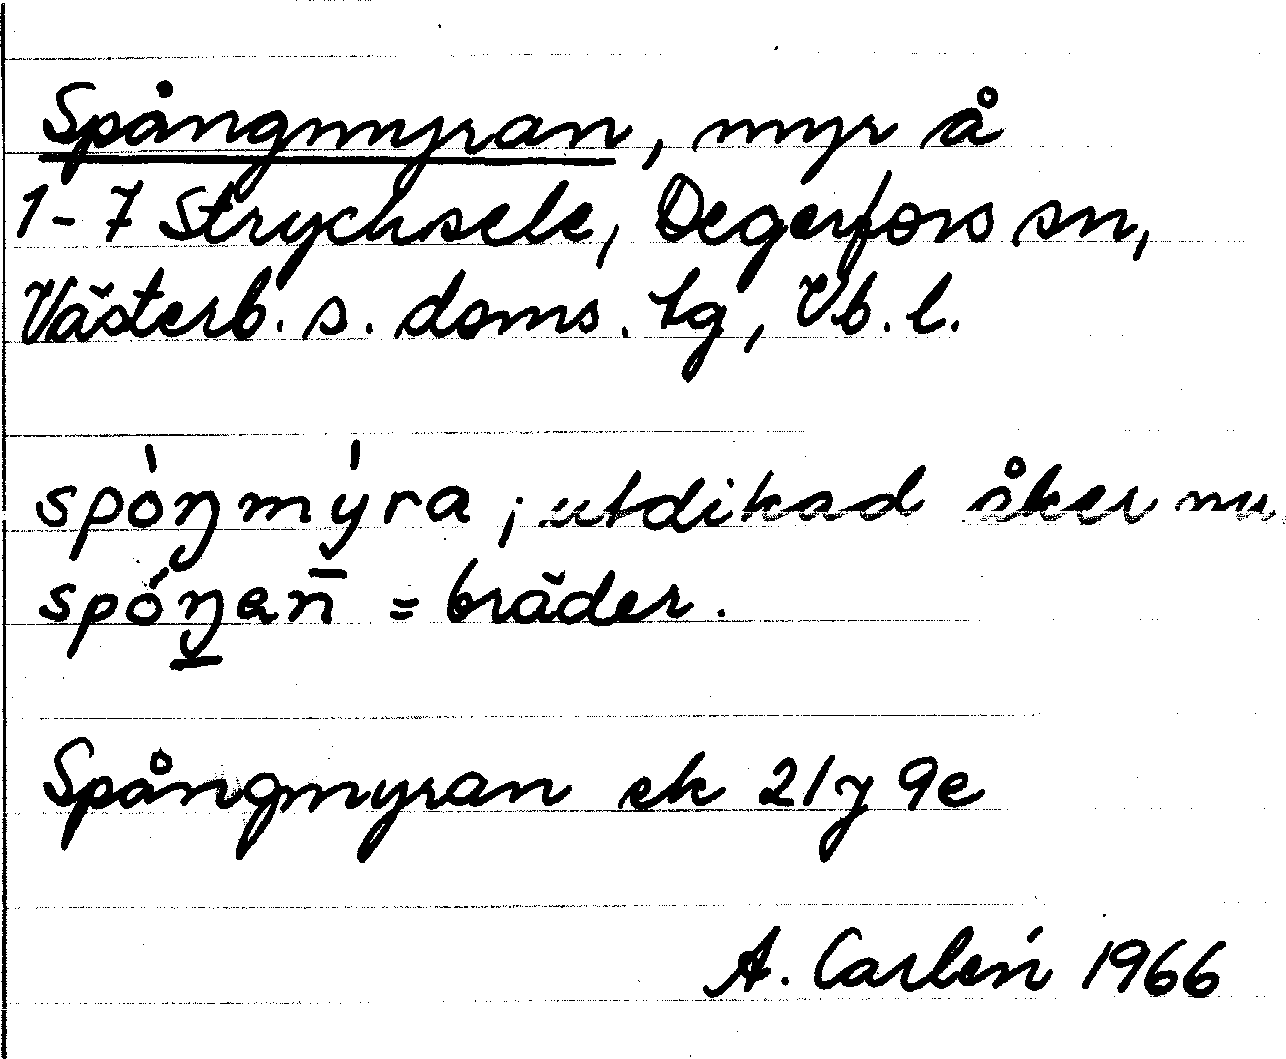 Spångmyran, myr å
1-7 Strycksele, Degerfors sn,
Västerb. s. doms. tg, Vb. l.
spòŋmýra; utdikad åker nu,
spóŋan̄ = bräder.
Spångmyran ek 21y 9e
A. Carlén 1966